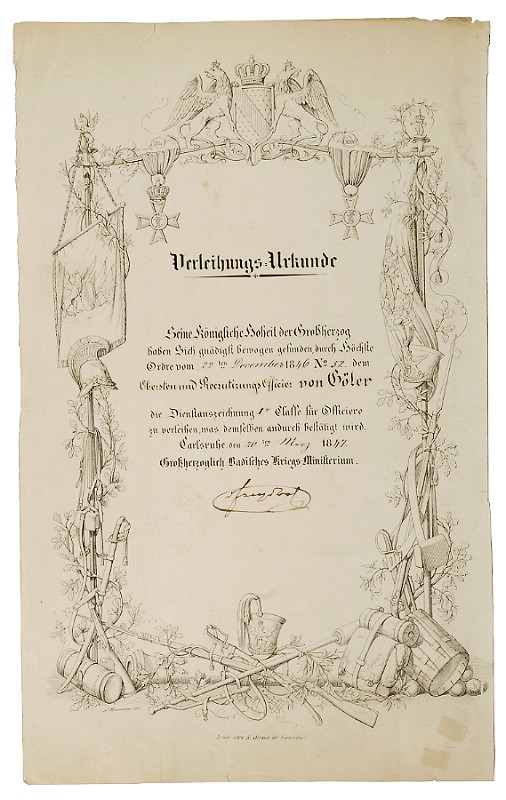 Verleihungs-Urkunde
Seine Königliche Hoheit der Großherzog
haben Sich gnädigst bewogen gefunden, durch Höchste
Ordre vom 22ten December 1846 No 52. dem
Obersten und Recrutirungs Officier von Göler
die Dienstauszeichnung 1r Classe für Officiere
zu verleihen, was demselben andurch bestätigt wird.
Carlsruhe, den 20ten März 1847.
Großherzoglich Badisches Kriegs Ministerium.